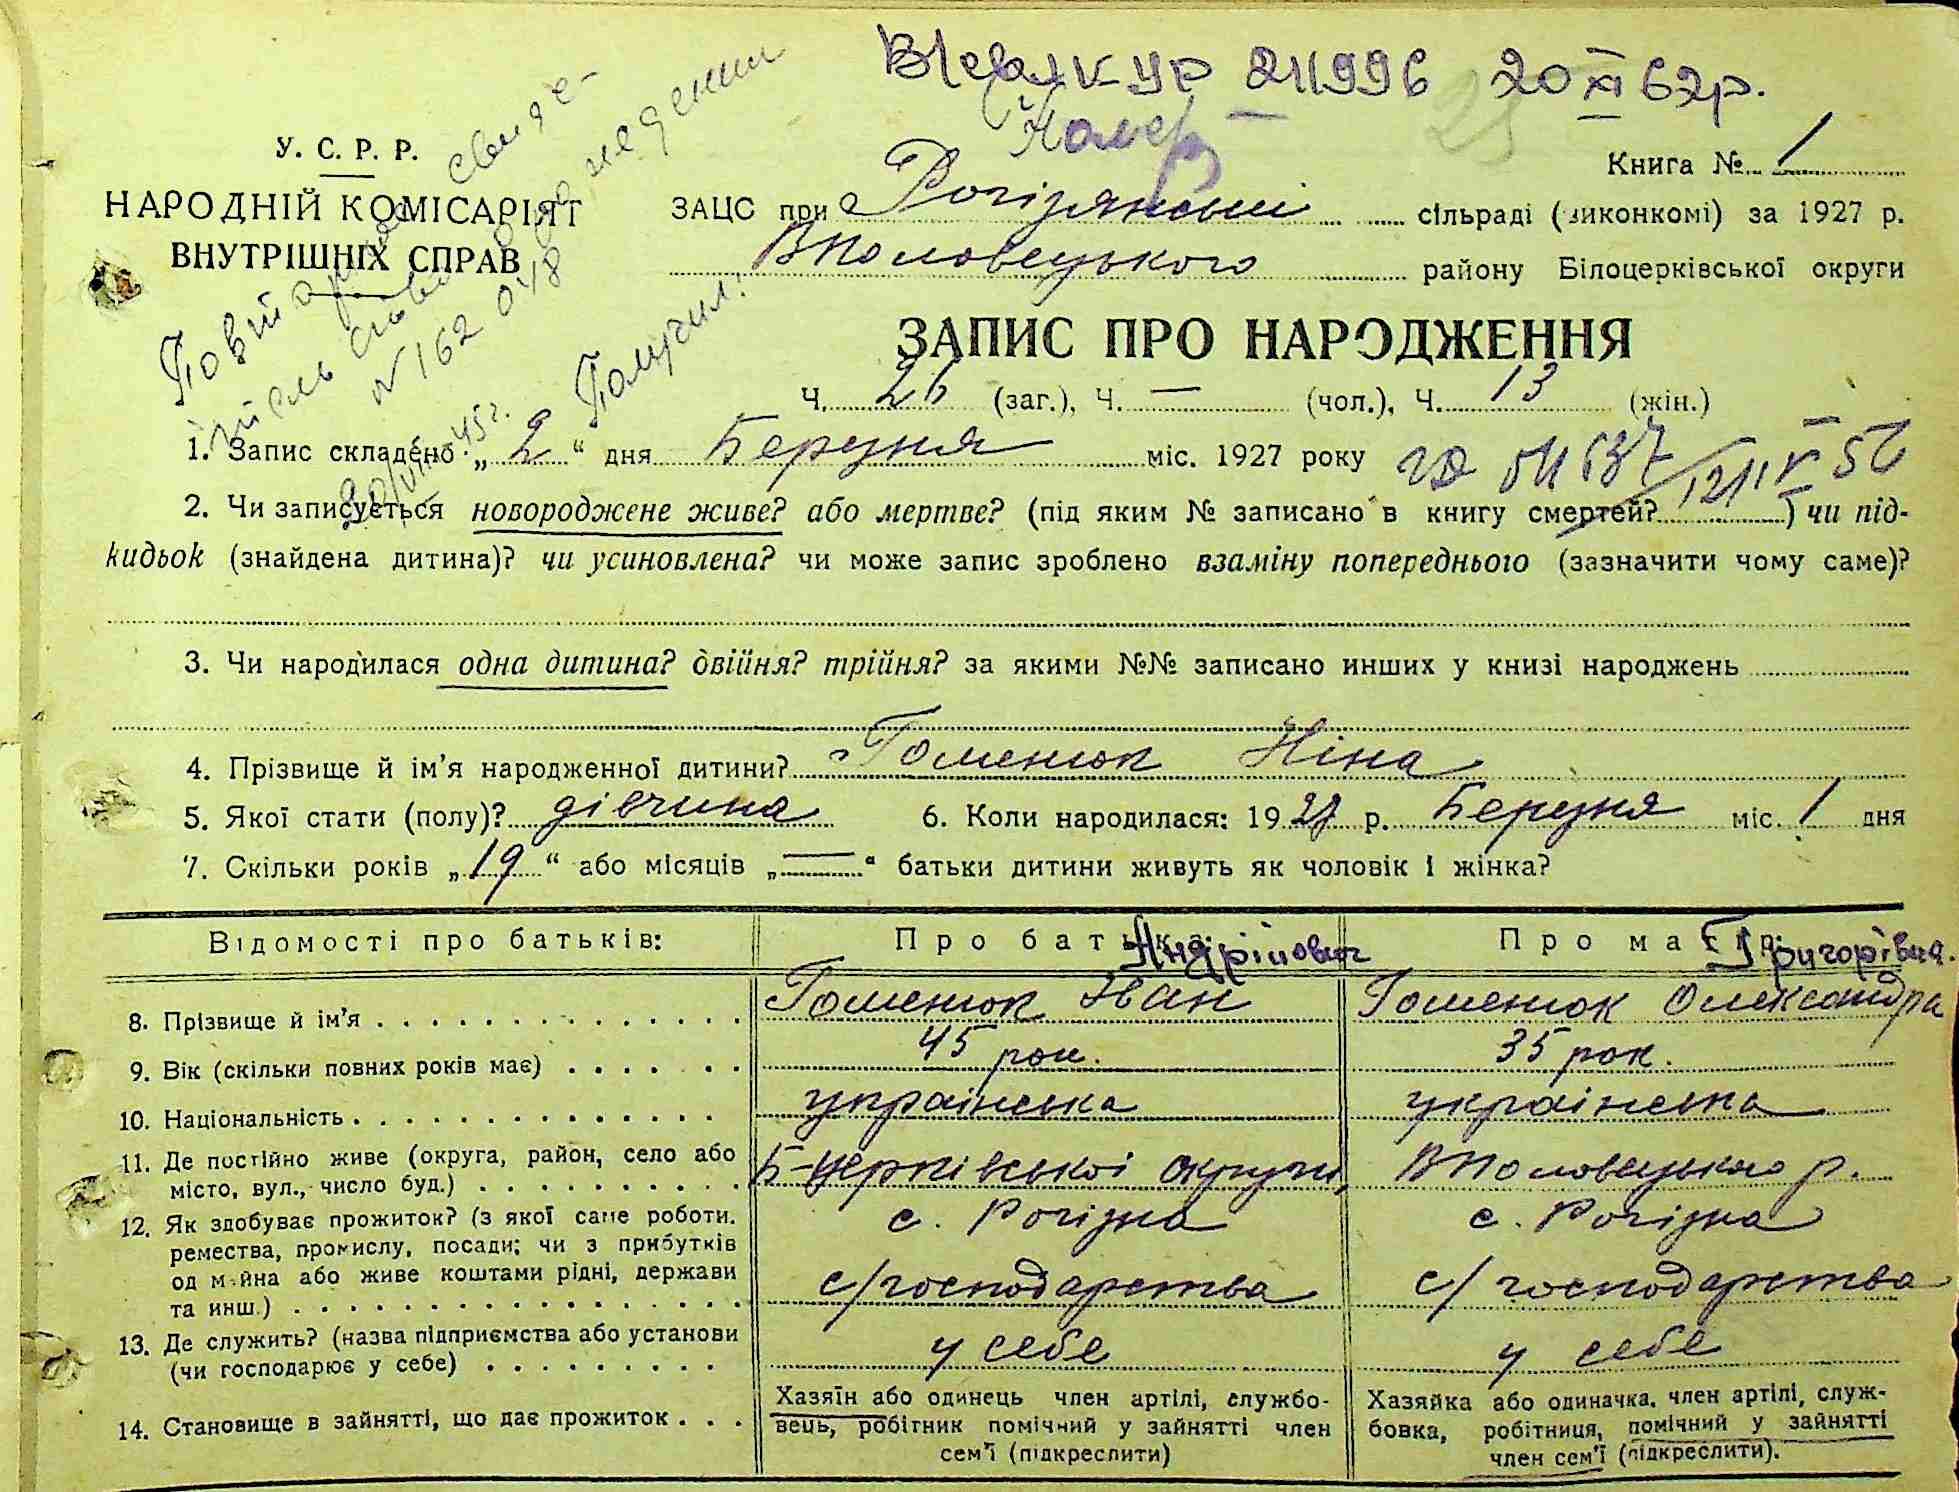 20 XI 62р.
У. С. Р. Р.
НАРОДНІЙ КОМІСАРІЯТ
ВНУТРІШНІХ СПРАВ
Книга № 1
ЗАЦС при Рогізянській сільраді (виконкомі) за 1927 р.
ВПоловецького району Білоцерківської округи
№ 162 048
Получил
ЗАПИС ПРО НАРОДЖЕННЯ
Ч. 26 (заг.), Ч. — (чол.), Ч. 13 (жін.)
1. Запис складено „2“ дня Березня міс. 1927 року
2. Чи записується новороджене живе? або мертве? (під яким № записано в книгу смертей? ) чи під-
кидьок (знайдена дитина)? чи усиновлена? чи може запис зроблено взаміну попереднього (зазначити чому саме)?
3. Чи народилася одна дитина? двійня? трійня? за якими №№ записано инших у книзі народжень
4. Прізвище й ім'я народженної дитини? Гоменюк Ніна
5. Якої стати (полу)? дівчина 6. Коли народилася: 1927 р. Березня міс. 1 дня
7. Скільки років „19“ або місяців „—“ батьки дитини живуть як чоловік і жінка?
Відомості про батьків: Про батька: Андрійович Про матір: Григорівна.
8. Прізвище й ім'я Гоменюк Іван Гоменюк Олександра
9. Вік (скільки повних років має) 45 рок. 35 рок.
10. Національність українська українська
11. Де постійно живе (округа, район, село або Б-Церківської округи, ВПоловецького р.
місто, вул., число буд.)
12. Як здобуває прожиток? (з якої саме роботи, с. Рогізна с. Рогізна
ремества, промислу, посади; чи з прибутків
од майна або живе коштами рідні, держави с/господарства с/господарства
та инш.)
13. Де служить? (назва підприємства або установи у себе у себе
(чи господарює у себе)
14. Становище в зайнятті, що дає прожиток
Хазяїн або одинець член артілі, службо-
вець, робітник помічний у зайнятті член
сем'ї (підкреслити)
Хазяйка або одиначка, член артілі, служ-
бовка, робітниця, помічний у зайнятті
член сем'ї (підкреслити).